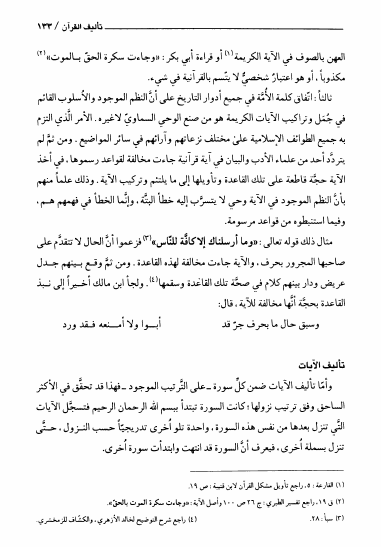 تأليف القرآن / ١٣٣
العهن بالصوف في الآية الكريمة(١) أو قراءة أبي بكر: «وجاءت سكرة الحقّ بالموت»(٢)
مكذوباً، أو هو اعتبارٌ شخصيٌّ لا يتّسم بالقرآنية في شيء.
ثالثاً: اتّفاق كلمة الأُمّة في جميع أدوار التاريخ على أنّ النظم الموجود والأسلوب القائم
في جُمَل وتراكيب الآيات الكريمة هو من صنع الوحي السماويّ لاغيره. الأمر الّذي التزم
به جميع الطوائف الإسلامية على مختلف نزعاتهم وآرائهم في سائر المواضيع. ومن ثمّ لم
يتردّد أحد من علماء الأدب والبيان في آية قرآنية جاءت مخالفة لقواعد رسموها، في أخذ
الآية حجّة قاطعة على تلك القاعدة وتأويلها إلى ما يلتئم وتركيب الآية. وذلك علماً منهم
بأنّ النظم الموجود في الآية وحي لا يتسرّب إليه خطأ البتّة، وإنّما الخطأ في فهمهم هم،
وفيما استنبطوه من قواعد مرسومة.
مثال ذلك قوله تعالى: «وما أرسلناك إلا كافّة للنّاس»(٣) فزعموا أنّ الحال لا تتقدّم على
صاحبها المجرور بحرف، والآية جاءت مخالفة لهذه القاعدة. ومن ثمّ وقع بينهم جدل
عريض ودار بينهم كلام في صحّة تلك القاعدة وسقمها(٤). ولجأ ابن مالك أخيراً إلى نبذ
القاعدة بحجّة أنّها مخالفة للآية، قال:
وسبق حال ما بحرف جرّ قد أبـوا ولا أمـنعه فـقد ورد
تأليف الآيات
وأمّا تأليف الآيات ضمن كلّ سورة -على التّرتيب الموجود- فهذا قد تحقّق في الأكثر
الساحق وفق ترتيب نزولها؛ كانت السورة تبتدأ ببسم الله الرحمان الرحيم فتسجّل الآيات
التي تنزل بعدها من نفس هذه السورة، واحدة تلو أخرى تدريجيّاً حسب النـزول، حـتّى
تنزل بسملة أُخرى، فيعرف أنّ السورة قد انتهت وابتدأت سورة أُخرى.
(١) القارعة: ٥، راجع تأويل مشكل القرآن لابن قتيبة: ص ١٩.
(٢) ق ١٩، راجع تفسير الطبري: ج ٢٦ ص ١٠٠ وأصل الآية: «وجاءت سكرة الموت بالحقّ».
(٣) سبأ: ٢٨. (٤) راجع شرح التوضيح لخالد الأزهري، والكشّاف للزمخشري.